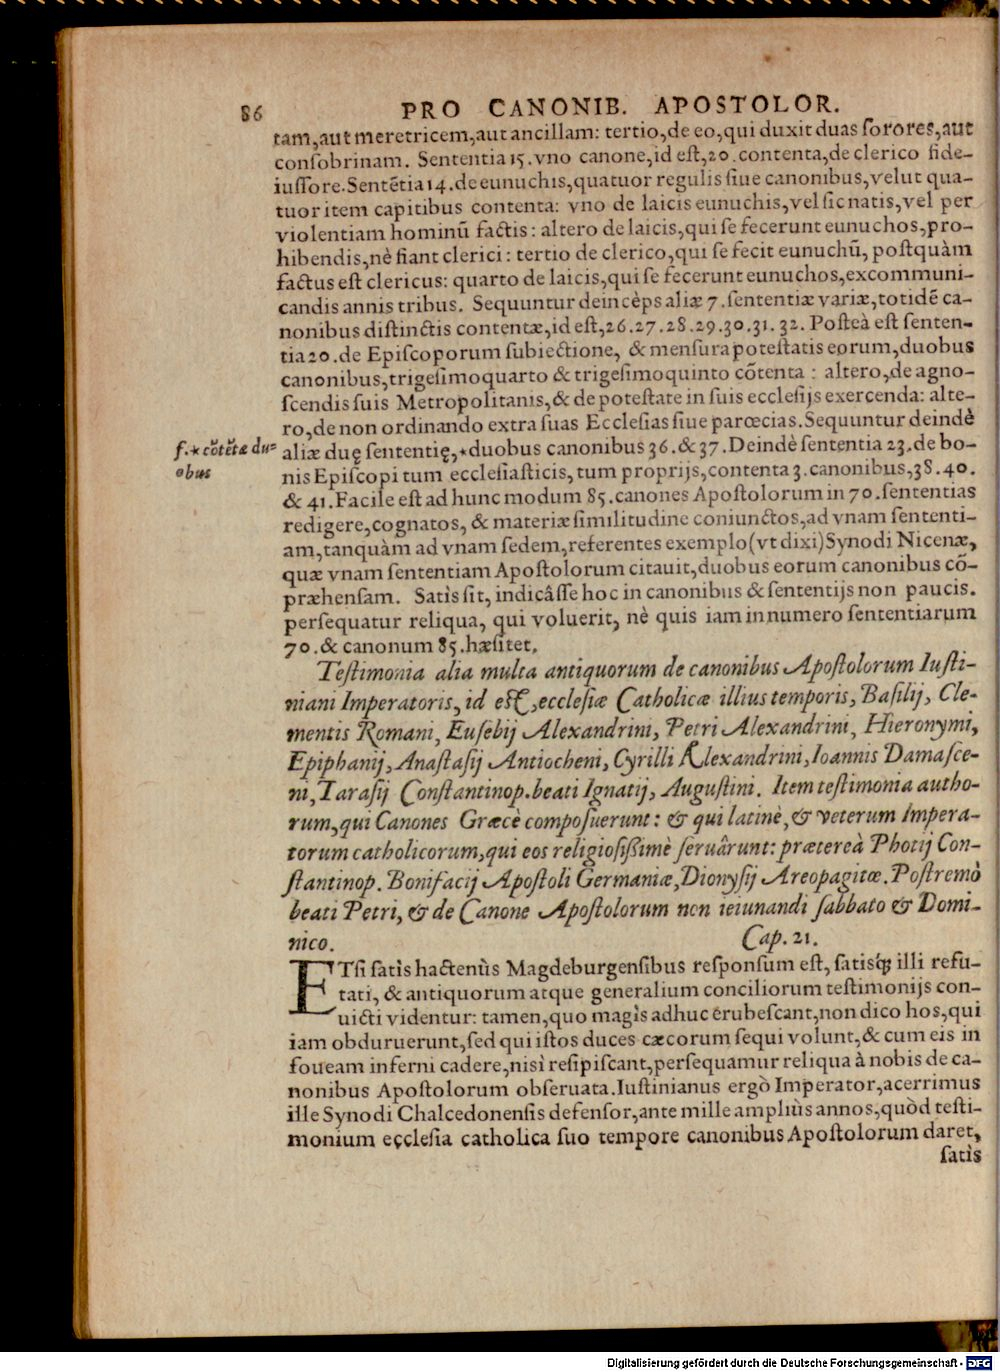 86 PRO CANONIB. APOSTOLOR.
tam,aut meretricem,aut ancillam: tertio,de eo,qui duxit duas ſorores,aut
conſobrinam. Sententia 15. vno canone,id eſt,20. contenta,de clerico fide-
iuſſore. Sentẽtia 14. de eunuchis,quatuor regulis ſiue canonibus,velut qua-
tuor item capitibus contenta: vno de laicis eunuchis,vel ſic natis,vel per
violentiam hominũ factis: altero de laicis,qui ſe fecerunt eunuchos,pro-
hibendis,nè fiant clerici: tertio de clerico,qui ſe fecit eunuchũ, poſtquàm
factus eſt clericus: quarto de laicis,qui ſe fecerunt eunuchos,excommuni-
candis annis tribus. Sequuntur deincèps aliæ 7. ſententiæ variæ,totidẽ ca-
nonibus diſtinctis contentæ,id eſt,26.27.28.29.30.31.32. Poſteà eſt ſenten-
tia 20. de Epiſcoporum ſubiectione, & menſura poteſtatis eorum,duobus
canonibus,trigeſimoquarto & trigeſimoquinto cõtenta: altero,de agno-
ſcendis ſuis Metropolitanis,& de poteſtate in ſuis eccleſijs exercenda: alte-
ro,de non ordinando extra ſuas Eccleſias ſiue parœcias. Sequuntur deindè
f.* cõtẽtæ du-
obus
aliæ duę ſententię,*duobus canonibus 36. & 37. Deindè ſententia 23. de bo-
nis Epiſcopi tum eccleſiaſticis,tum proprijs,contenta 3. canonibus,38. 40.
& 41. Facile eſt ad hunc modum 85. canones Apoſtolorum in 70. ſententias
redigere,cognatos, & materiæ ſimilitudine coniunctos,ad vnam ſententi-
am,tanquàm ad vnam ſedem,referentes exemplo (vt dixi) Synodi Nicenæ,
quæ vnam ſententiam Apoſtolorum citauit,duobus eorum canonibus cõ-
præhenſam. Satìs ſit, indicâſſe hoc in canonibus & ſententijs non paucis.
perſequatur reliqua, qui voluerit, nè quis iam in numero ſententiarum
70. & canonum 85. hæſitet.
Teſtimonia alia multa antiquorum de canonibus Apoſtolorum Iuſti-
niani Imperatoris, id eſt, eccleſiæ Catholicæ illius temporis, Baſilij, Cle-
mentis Romani, Euſebij Alexandrini, Petri Alexandrini, Hieronymi,
Epiphanij, Anaſtaſij Antiocheni, Cyrilli Alexandrini, Ioannis Damaſce-
ni, Taraſij Conſtantinop. beati Ignatij, Auguſtini. Item teſtimonia autho-
rum, qui Canones Græcè compoſuerunt: & qui latinè, & veterum Impera-
torum catholicorum, qui eos religioſißimè ſeruârunt: prætereà Photij Con-
ſtantinop. Bonifacij Apoſtoli Germaniæ, Dionyſij Areopagitæ. Poſtremò
beati Petri, & de Canone Apoſtolorum non ieiunandi ſabbato & Domi-
nico. Cap. 21.
ETſi ſatìs hactenùs Magdeburgenſibus reſponſum eſt, ſatisq́; illi refu-
tati, & antiquorum atque generalium conciliorum teſtimonijs con-
uicti videntur: tamen,quo magìs adhuc erubeſcant,non dico hos,qui
iam obduruerunt,ſed qui iſtos duces cæcorum ſequi volunt,& cum eis in
foueam inferni cadere,niſì reſipiſcant,perſequamur reliqua à nobis de ca-
nonibus Apoſtolorum obſeruata. Iuſtinianus ergò Imperator,acerrimus
ille Synodi Chalcedonenſis defenſor,ante mille ampliùs annos,quòd teſti-
monium eccleſia catholica ſuo tempore canonibus Apoſtolorum daret,
ſatìs
Digitalisierung gefördert durch die Deutsche Forschungsgemeinschaft - DFG